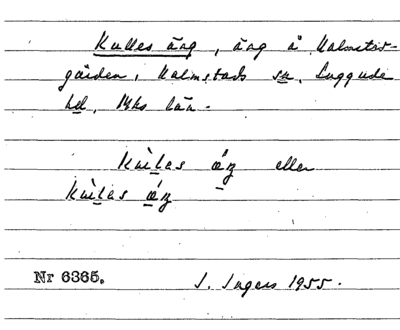 Kulles äng, äng å Kalmstads-
gården, Kalmstads sn, Luggude
hd, Mhs län.
Kùlas ǽŋ eller
Kùlas ǽŋ
Nr 6365. J. Ingers 1955.